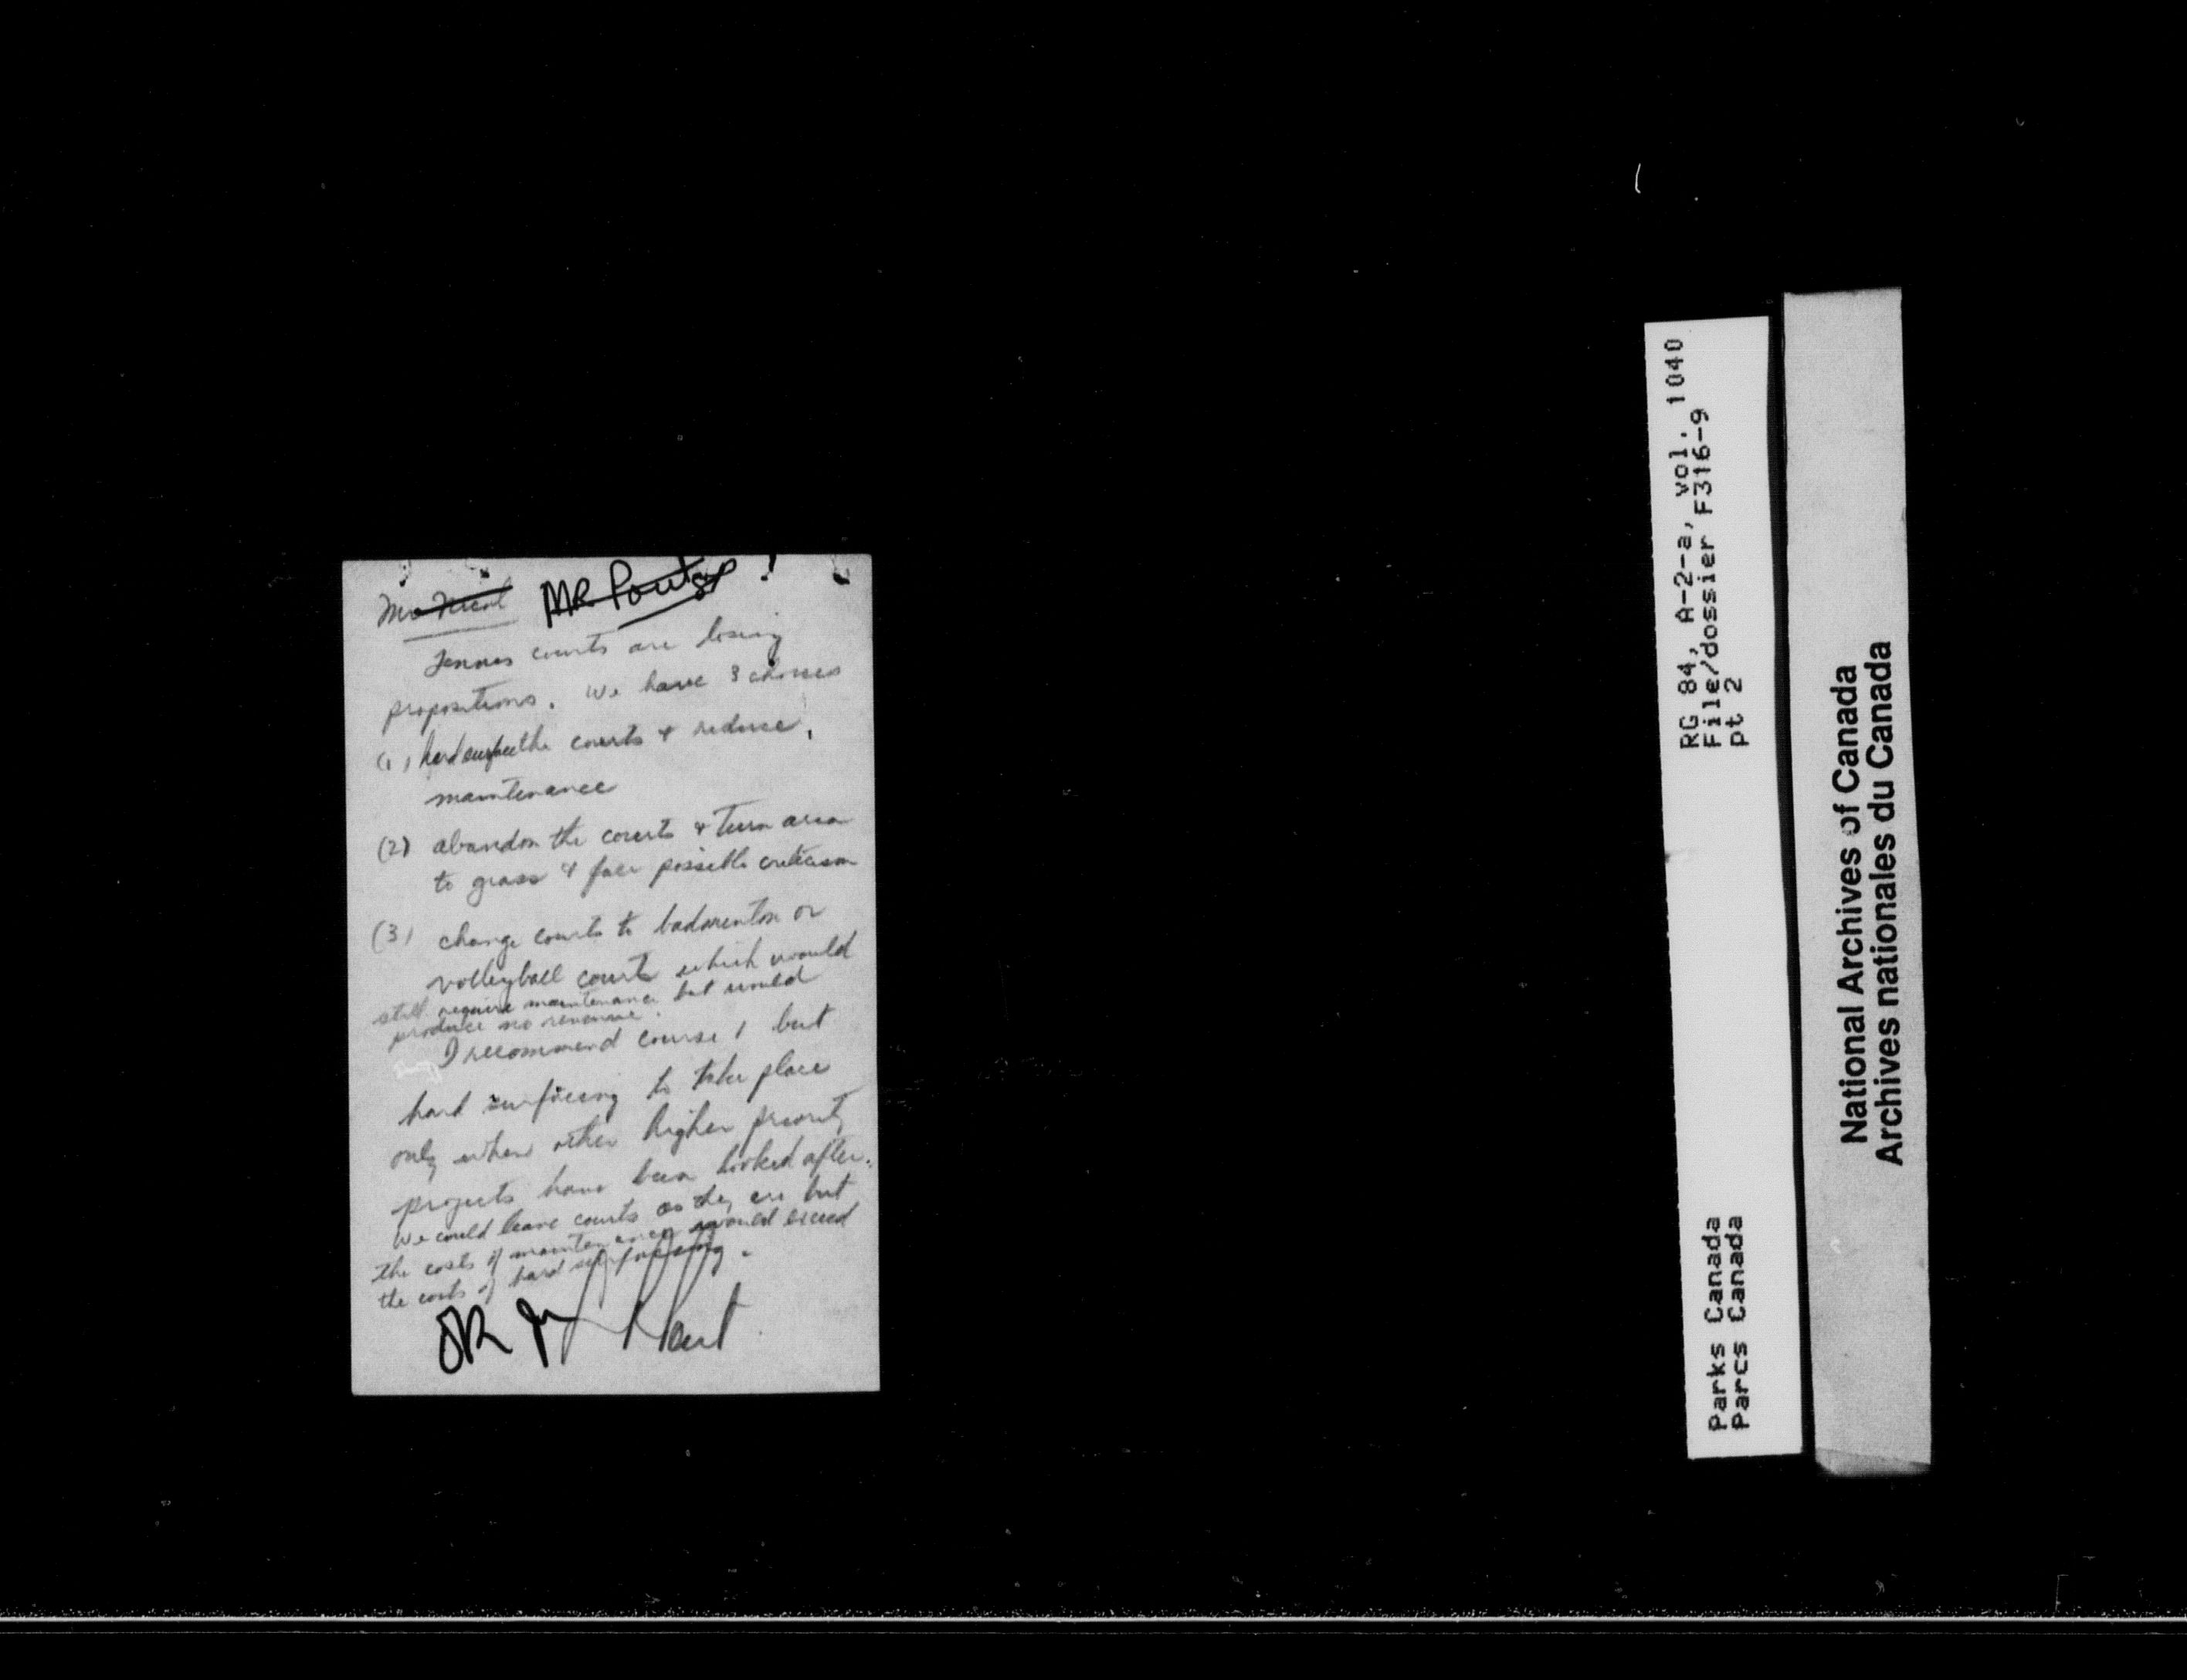 Mr Nicol MR Pouts!
Tennis courts are losing
propositions. We have 3 choices
(1) hard surface the courts & reduce
maintenance
(2) abandon the courts & turn area
to grass & face possible criticism
(3) change courts to badminton or
volleyball courts which would
still require maintenance but would
produce no revenue.
I recommend course 1 but
hard surfacing to take place
only when other higher priority
projects have been looked after.
We could leave courts as they are but
the costs of maintenance would exceed
the costs of hard surfacing.
OK
RG 84, A-2-a, vol. 1040
File/dossier F316-9
pt 2
Parks Canada
Parcs Canada
National Archives of Canada
Archives nationales du Canada